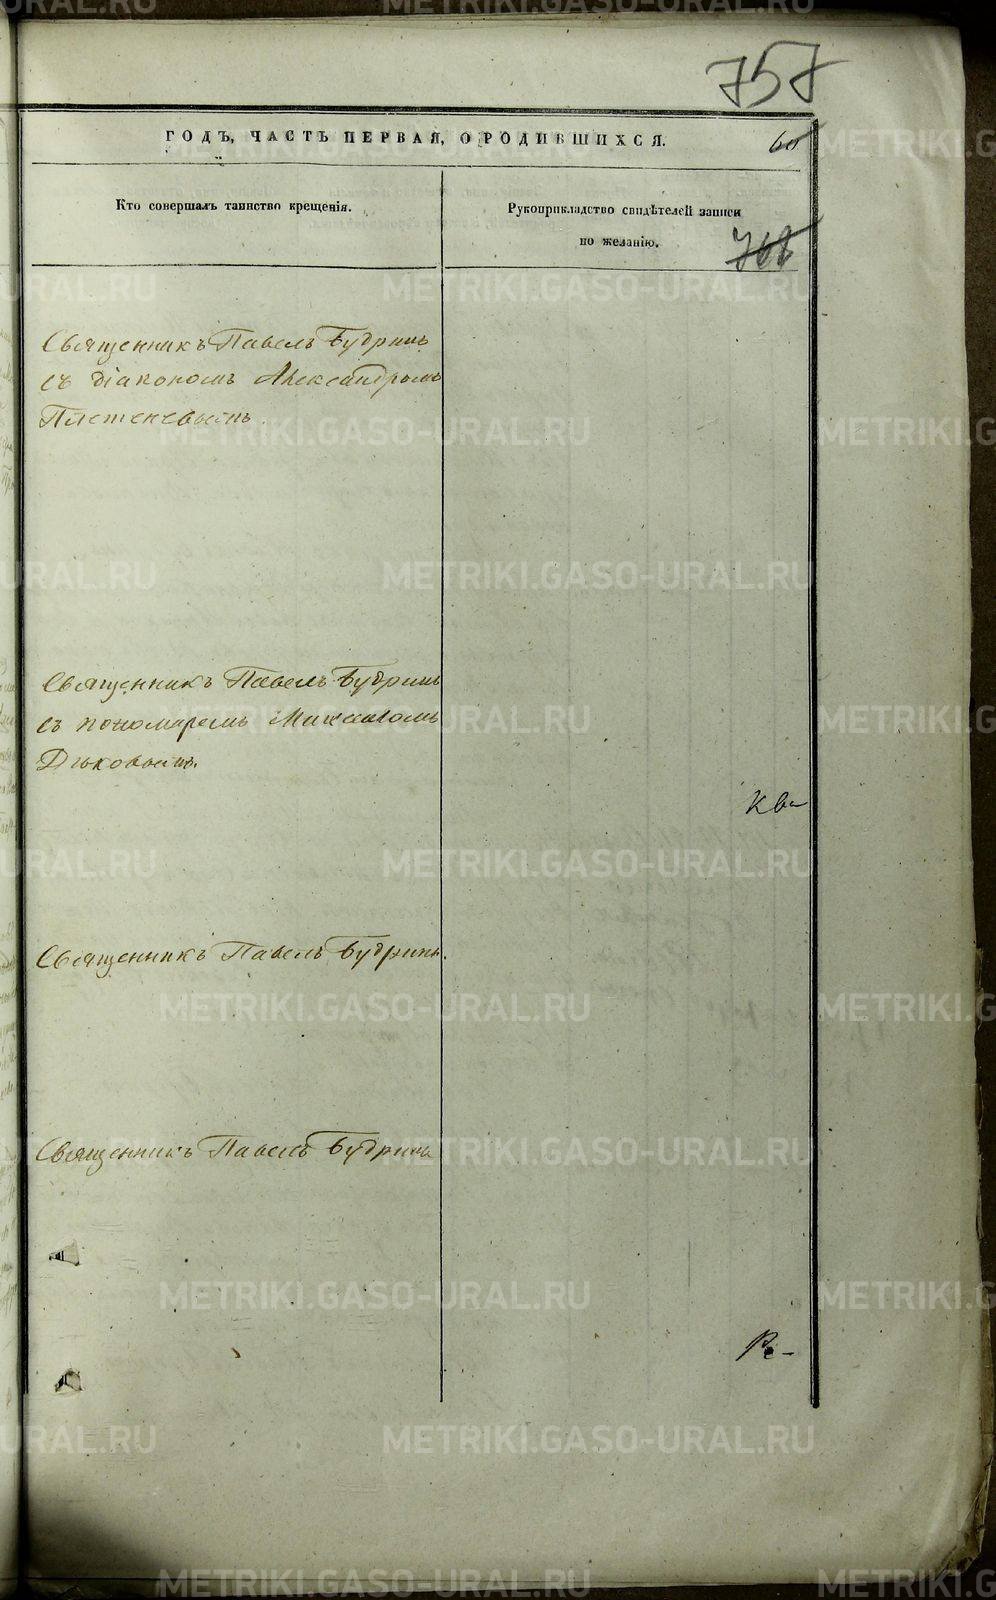 757
ГОДЪ, ЧАСТЬ ПЕРВАЯ, О РОДИВШИХСЯ.
60
Кто совершалъ таинство крещенія.
Рукоприкладство свидѣтелей записи
по желанію.
768
Священникъ Павелъ Будринъ
съ діакономъ Александромъ
Плетеневымъ.
Священникъ Павелъ Будринъ
съ пономаремъ Михаиломъ
Дьковымъ.
Священникъ Павелъ Будринъ.
Священникъ Павелъ Будринъ
METRIKI.GASO-URAL.RU